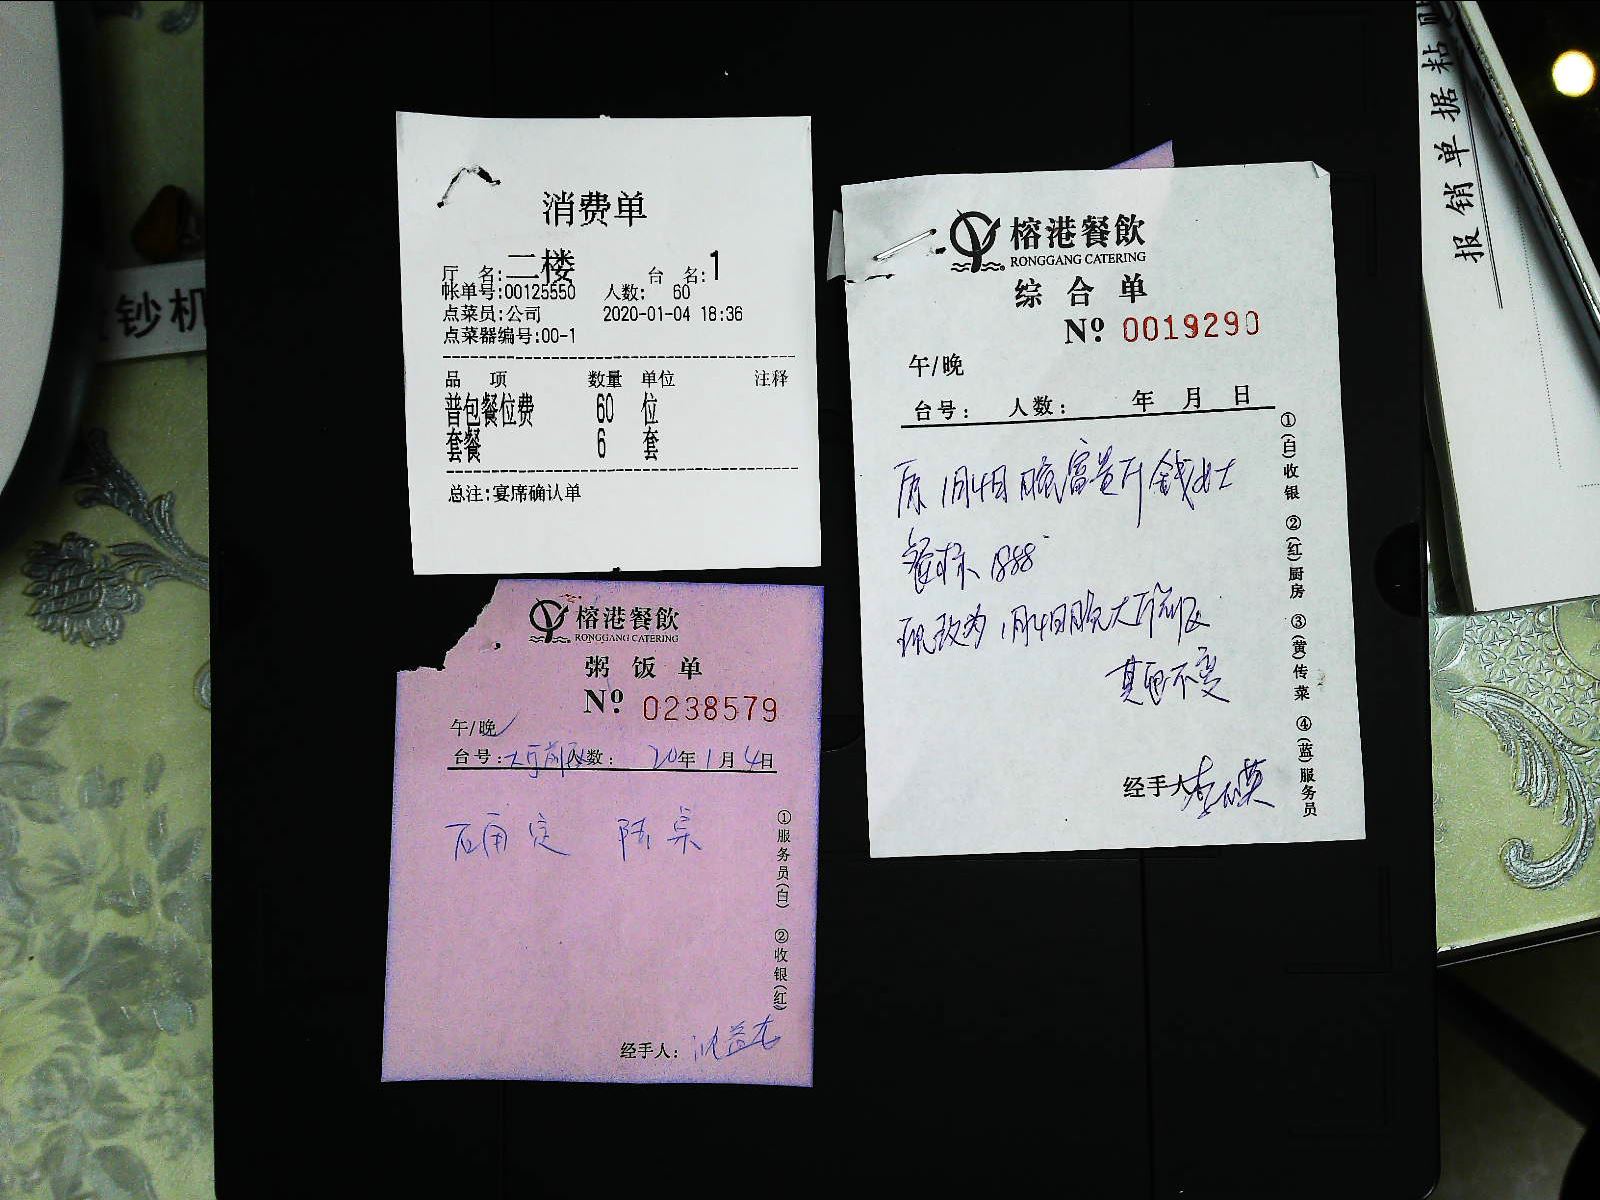 消费单
厅 名:二楼 台 名:1
帐单号:00125550 人数: 60
点菜员:公司 2020-01-04 18:36
点菜器编号:00-1
品 项 数量 单位 注释
普包餐位费 60 位
套餐 6 套
总注:宴席确认单
榕港餐飲
RONGGANG CATERING
粥饭单
Nº 0238579
午/晚
台号:大厅前区 人数: 20年1月4日
确定 陆桌
①服务员(白) ②收银(红)
经手人:
榕港餐飲
RONGGANG CATERING
综合单
Nº 0019290
午/晚
台号: 人数: 年 月 日
原1月4日晚富贵厅钱女士
餐标1888
现改为1月4日晚大厅前区
其它不变
经手人
①(白)收银 ②(红)厨房 ③(黄)传菜 ④(蓝)服务员
钞机
报销单据粘贴